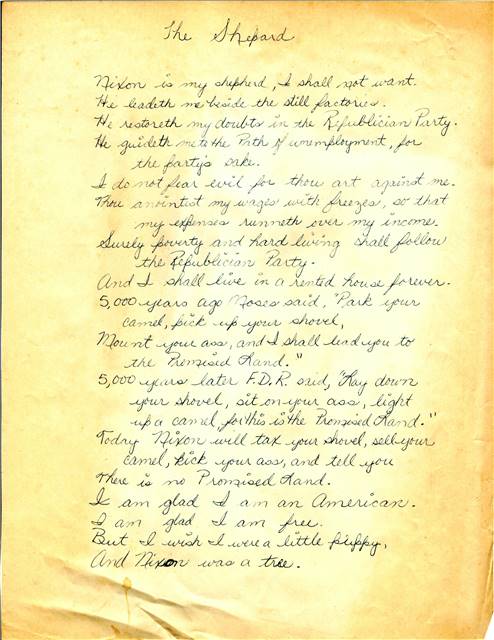 The Shepard
Nixon is my shepherd, I shall not want.
He leadeth me beside the still factories.
He restoreth my doubts in the Republician Party.
He guideth me to the Path of unemployment, for
the party's sake.
I do not fear evil for thou art against me.
Thou anointist my wages with freezes, so that
my expenses runneth over my income.
Surely poverty and hard living shall follow
the Republician Party.
And I shall live in a rented house forever.
5,000 years ago Moses said, "Park your
camel, pick up your shovel,
Mount your ass, and I shall lead you to
the Promised Land."
5,000 years later F.D.R. said, "Lay down
your shovel, sit on your ass, light
up a camel, for this is the Promised Land."
Today Nixon will tax your shovel, sell your
camel, kick your ass, and tell you
There is no Promised Land.
I am glad I am an American.
I am glad I am free.
But I wish I were a little puppy,
And Nixon was a tree.